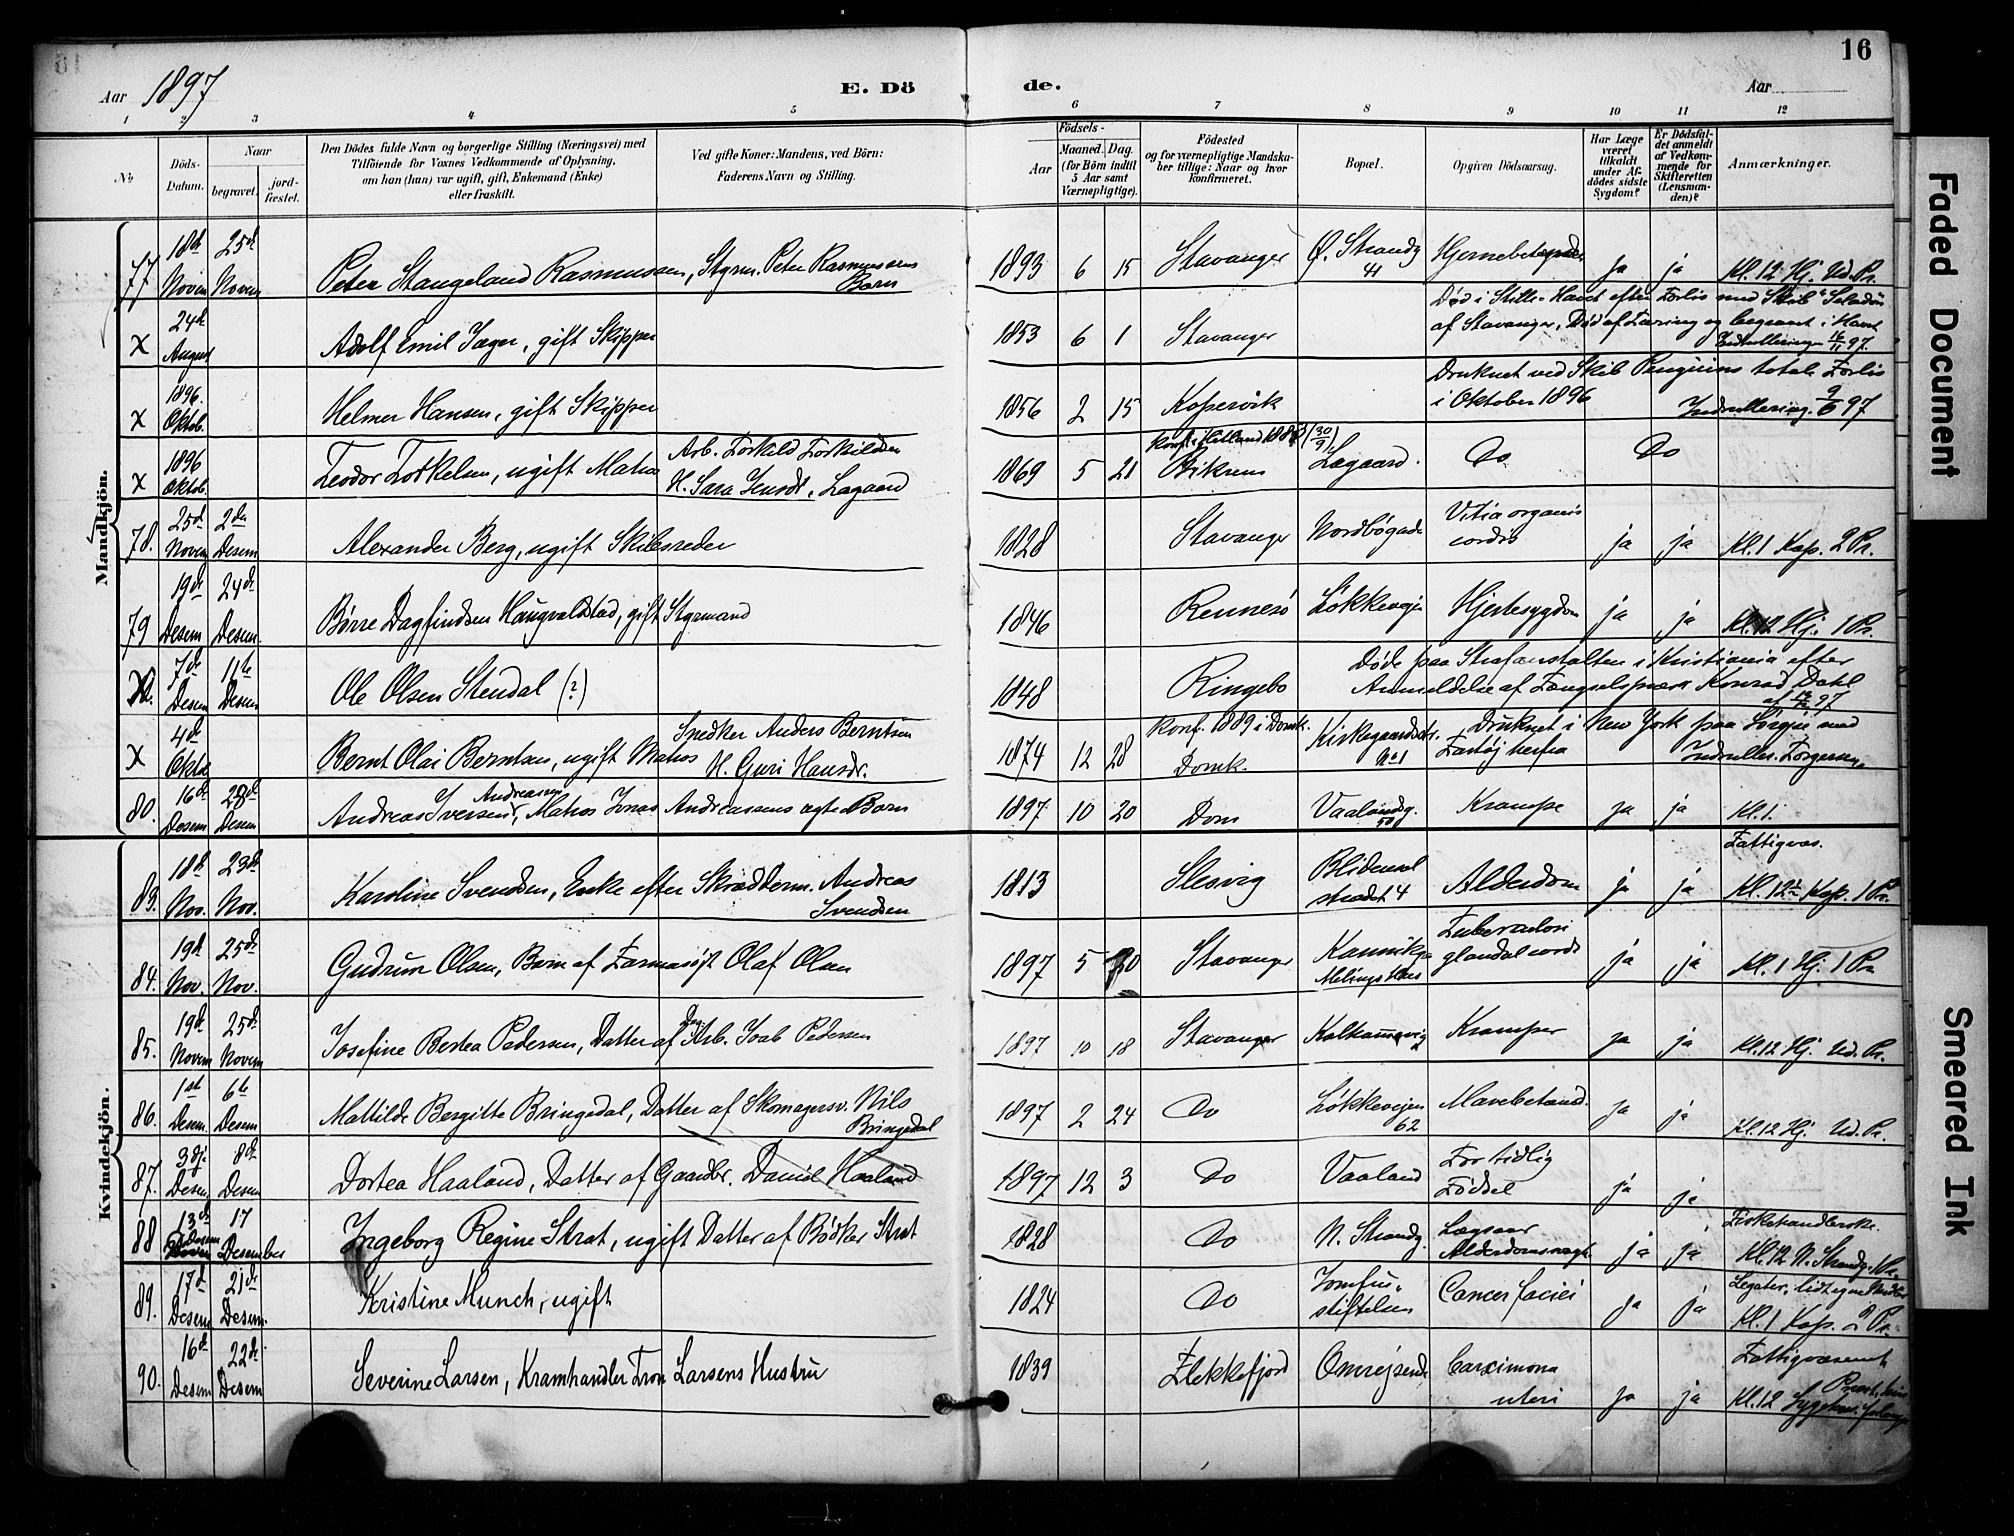 16
Aar 1897
E. Dö
de.
Aar
1 2 3 4 5 6 7 8 9 10 11 12
No
Döds-
Datum.
Naar
begravet.
jord-
fæstet.
Den Dödes fulde Navn og borgerlige Stilling (Næringsvei) med
Tilföiende for Voxnes Vedkommende af Oplysning,
om han (hun) var ugift, gift, Enkemand (Enke)
eller fraskilt.
Ved gifte Koner: Mandens, ved Börn:
Faderens Navn og Stilling.
Födsels-
Aar
Maaned.
Dag.
(for Börn indtil
5 Aar samt
Værnepligtige).
Födested
og for værnepligtige Mandska-
ber tillige: Naar og hvor
konfirmeret.
Bopæl.
Opgiven Dödsaarsag.
Har Læge
været
tilkaldt
under Af-
dödes sidste
Sygdom?
Er Dödsfal-
det anmeldt
af Vedkom-
mende for
Skifteretten
(Lensman-
den)?
Anmærkninger.
Mandkjön.
77 18de Novem 25de Novem Peter Stangeland Rasmussen, Styrm. Peter Rasmussens Barn 1893 6 15 Stavanger Ø. Strandg 41 ja ja Kl. 12 Hj. Ud. Pr.
X 24de August Adolf Emil Jæger, gift Skipper 1853 6 1 Stavanger Død i Stille-Havet efter Forlis med Skib
af Stavanger, Død af og begravet i Havet
16/11 97.
X 1896. Oktob. Helmer Hansen, gift Skipper 1856 2 15 Kopervik Druknet ved Skib Penguins totale Forlis
i Oktober 1896 Indrullering. 97
X 1896 Oktob. Teodor Torkelsen, ugift Matros Arb. Torkild Torkildsen
H. Sara Jensdt. Lagaard 1869 5 21 Konf. i (30/9) Bikrem Lagaard. Do Do
78. 25de Novem 2den Desem Alexander Berg, ugift Skibsreder 1828 Stavanger Nordbøgade Vitia organis
cordis ja ja Kl. 1 Kap. 2 Pr.
79 19de Desem 24de Desem. Børre Dagfindsen Haugvaldstad, gift Styrmand 1846 Rennesø Løkkevejen Hjertesygdom ja ja Kl. 12 Hj. 1 Pr.
7de Desem 11te Desem Ole Olsen Stendal (?) 1848 Ringebo Døde paa Strafanstalten i Kristiania efter
Anmeldelse af Fængselspræst Konrad Dahl
97
X 4de Oktb Bernt Olai Berntsen, ugift Matros Snedker Anders Berntsen
H. Guri Hansdr. 1874 12 28 Konf. 1889 i Domk.
Domk. Kirkegaardstr.
No 1 Druknet i New York paa Rejse med
Fartøj herfra
80. 16de Desem 28de Desem Andreas Iversen Andreassen, Matros Jonas Andreassens ægte Barn 1897 10 20 Dom Vaalandsg.
50 Krampe ja ja Kl. 1.
Kvindekjön.
83. 18de Nov. 23de Nov. Karoline Svendsen, Enke efter Skrædderm. Andreas
Svendsen 1813 Slesvig Blidensol
strædet 4 Alderdom ja ja Fattigvæs.
Kl. 12 Kap. 1 Pr.
84. 19de Nov. 25de Nov. Gudrun Olsen, Barn af Farmasøjt Olaf Olsen 1897 5 30 Stavanger Kannikga
Melings Hus ja ja Kl. 1 Hj. 1 Pr
85. 19de Novem 25de Novem Josefine Bertea Pedersen, Datter af Dag Arb. Joab Pedersen 1897 10 18 Stavanger Kalhammervig Kramper ja ja Kl. 12 Hj. Ud. Pr.
86. 1ste Desem. 6te Desem Matilde Bergitte Bringedal, Datter af Skomagersv. Nils
Bringedal 1897 2 24 Do Løkkevejen
62 Mavebetænd. ja ja Kl. 12 Hj. Ud. Pr.
87. 3dje Desem 8de Desem Dortea Haaland, Datter af Gaardbr. Daniel Haaland 1897 12 3 Do Vaaland For tidlig
Fødsel ja ja
88 13de Desem 17 Desember Ingeborg Regine Strat, ugift Datter af Bødker Strat 1828 Do N. Strandg. Lægsaar
Alderdomssvagh. ja ja Fiskehandlerske.
Kl. 12 N. Strandg. 1 Pr.
89. 17de Desem 21de Desem. Kristine Munch, ugift 1824 Do Jomfru-
stiftelsen Cancer faciei ja ja Legater, lidt egne Midler
Kl. 1 Kap. 2 Pr.
90. 16de Desem 22de Desem Severine Larsen, Kramhandler Tron Larsens Hustru 1839 Flekkefjord Omrejsende Carcimona
uteri ja ja Fattigvæsenet
Kl. 12
Faded Document
Smeared Ink